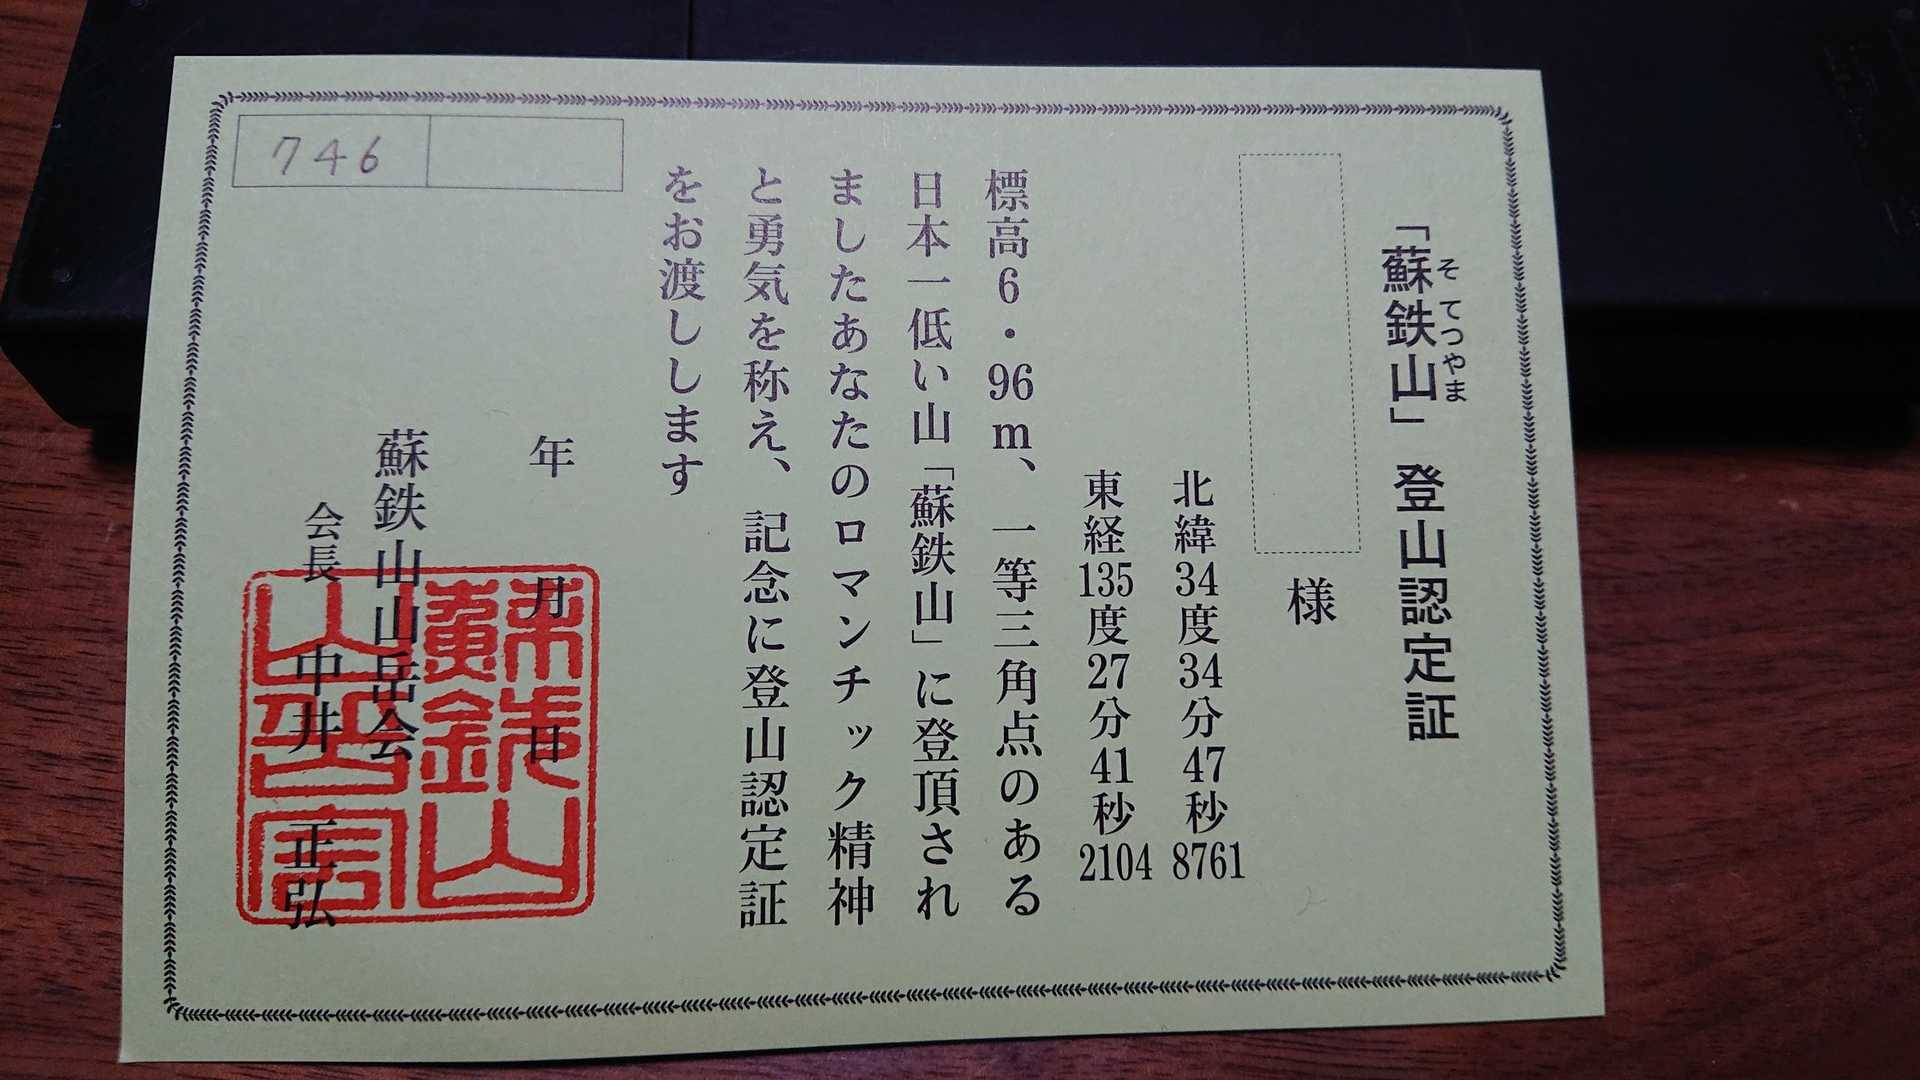 「蘇鉄山」登山認定証
そてつやま
様
北緯34度34分47秒8761
東経135度27分41秒2104
標高6・96m、一等三角点のある
日本一低い山「蘇鉄山」に登頂され
ましたあなたのロマンチック精神
と勇気を称え、記念に登山認定証
をお渡しします
年 月 日
蘇鉄山山岳会
会長 中井 正弘
746